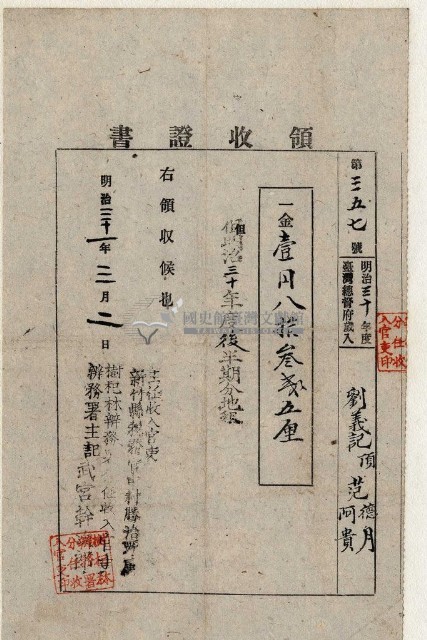 領收證書
第三五七號
明治三十年度
臺灣總督府歲入
劉義記頂范
德月
阿貴
一金壹円八拾叁錢五厘
但明治三十年度後半期分地租
右領收候也
明治三十一年三月二日
主任收入官吏
新竹縣
樹杞林辨務署
辨務署主記武宮
分任收
入官吏印
國史館臺灣文獻館